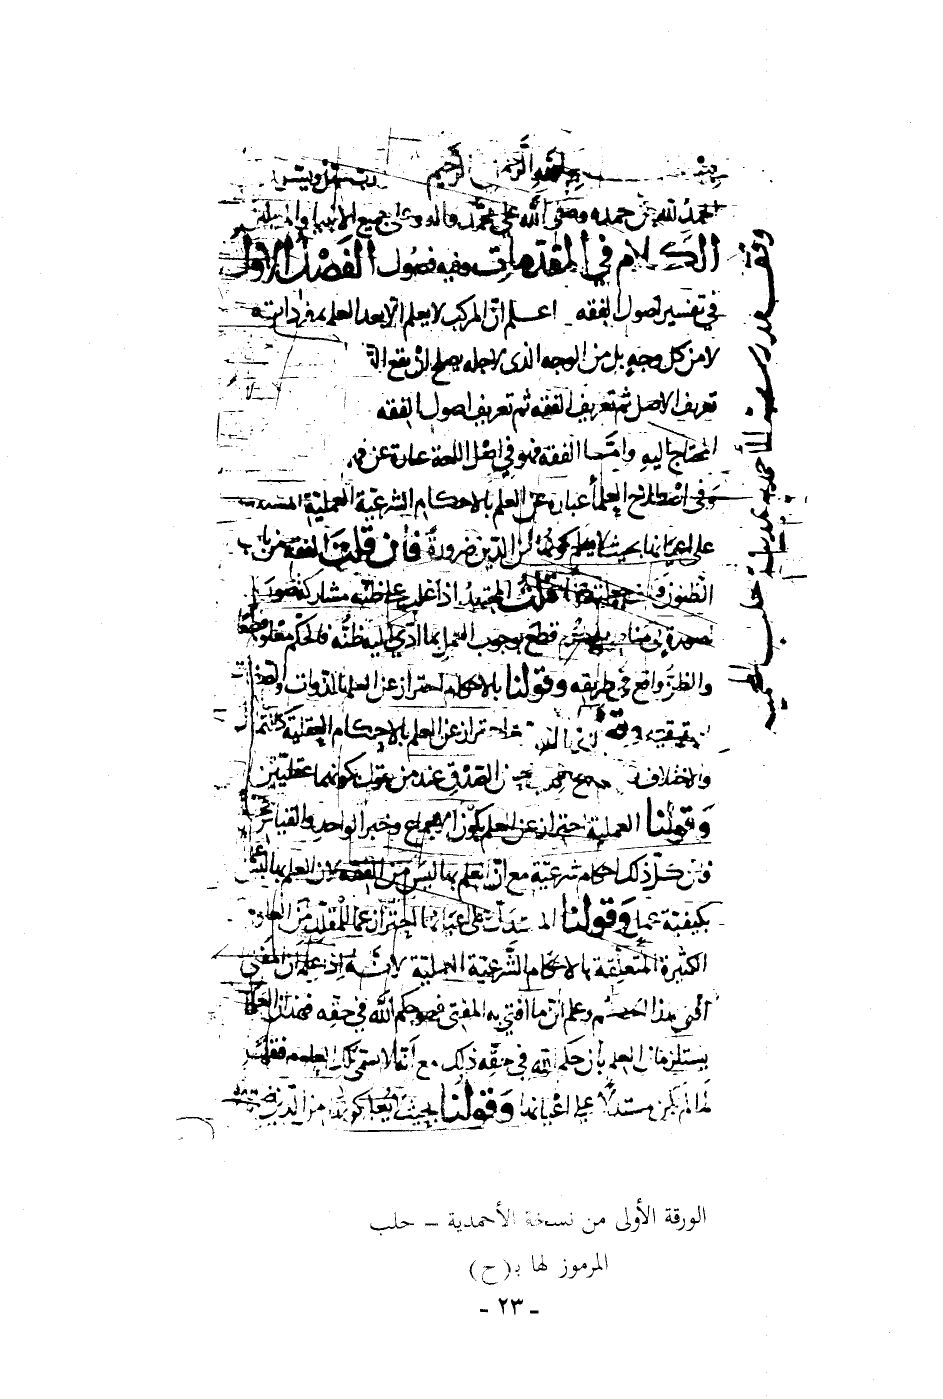 بسم الله الرحمن الرحيم رب
الحمد لله حمده وصلى الله على محمد وآله وعلى جميع الانبيا والمرسلين
الكلام في المقدمات وفيه فصول الفصل الاول
في تفسير اصول الفقه اعلم ان المركب لا يعلم الا بعد العلم بمفرداته
لا من كل وجه بل من الوجه الذى لاجله يصلح ان يقع
تعريف الاصل ثم تعريف الفقه ثم تعريف اصول الفقه
المحتاج اليه واما الفقه فهو في اصل اللغة عبارة عن
وفى اصطلاح العلما عبارة عن العلم بالاحكام الشرعية العملية
على اعيانها بحيث لا يعلم كونها من الدين ضرورة فان قلت الفقه من باب
الظنون قلت المجتهد اذا غلب على ظنه مشاركة صورة
لصورة في مناط قطع بوجوب العمل بما ادى اليه ظنه فالحكم معلوم قطعا
والظن واقع في طريقه وقولنا بالاحكام احتراز عن العلم بالذوات والصفات
الحقيقية احتراز عن العلم بالاحكام العقلية
عند من يقول بكونهما عقليتين
وقولنا العملية احتراز عن العلم بكون الاجماع وخبر الواحد والقياس حجة
فان كل ذلك احكام شرعية مع ان العلم بها ليس من الفقه لان العلم بها ليس
بكيفية عمل وقولنا المستدل على اعيانها احتراز عما للمقلد من العلوم
الكثيرة المتعلقة بالاحكام الشرعية العملية لانه اذا علم ان المفتى
افتى بهذا الحكم وعلم ان ما افتى به المفتى فهو حكم الله في حقه فهذان العلمان
يستلزمان العلم بان حكم الله في حقه ذلك مع ان
لما لم يكن مستدلا على اعيانها وقولنا بحيث لا يعلم كونها من الدين
وقف مدرسة الأحمدية بمدينة حلب المحمية
الورقة الأولى من نسخة الأحمدية – حلب
المرموز لها بـ (ح)
- ٢٣ -